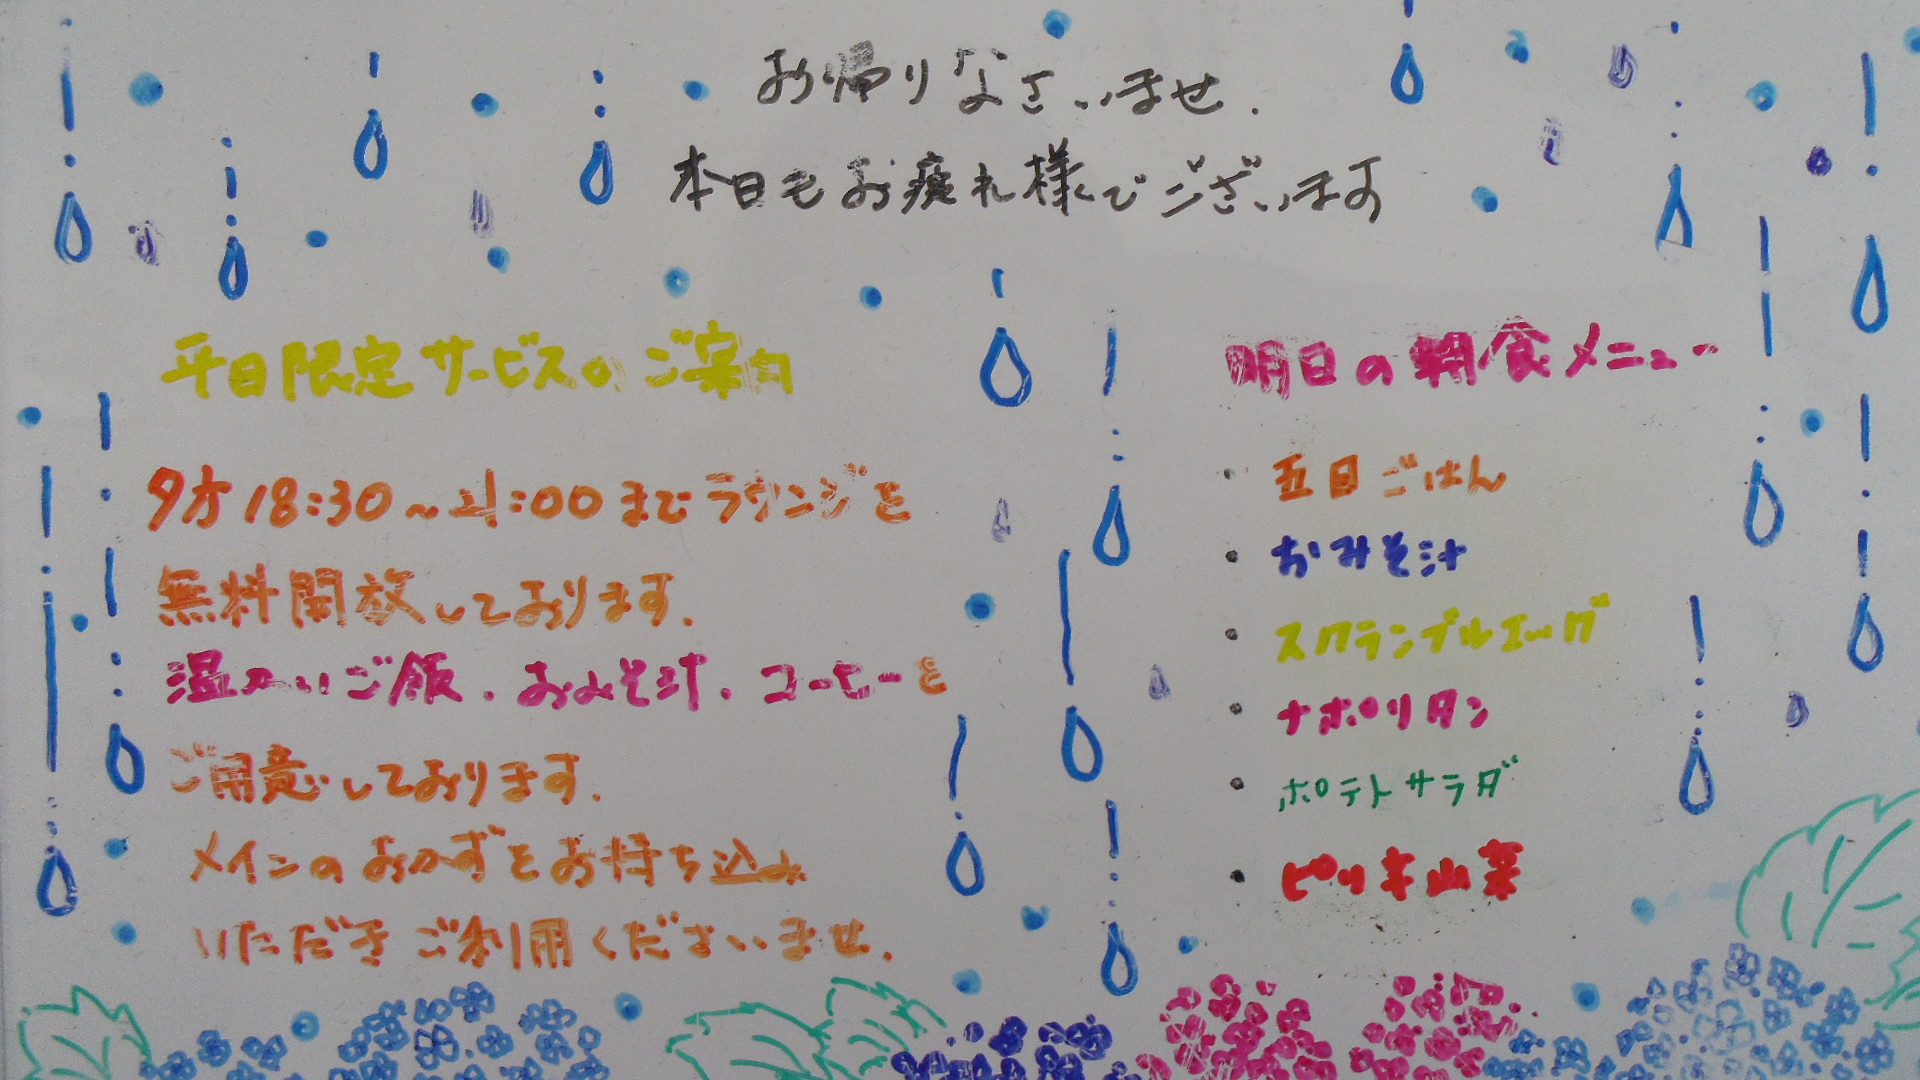 お帰りなさいませ.
本日もお疲れ様でございます
平日限定サービスのご案内
夕方18:30～21:00までラウンジを
無料開放しております.
温かいご飯、おみそ汁、コーヒーを
ご用意しております.
メインのおかずをお持ち込み
いただきご利用くださいませ.
明日の朝食メニュー
・五目ごはん
・おみそ汁
・スクランブルエッグ
・ナポリタン
・ポテトサラダ
・ピリ辛山菜